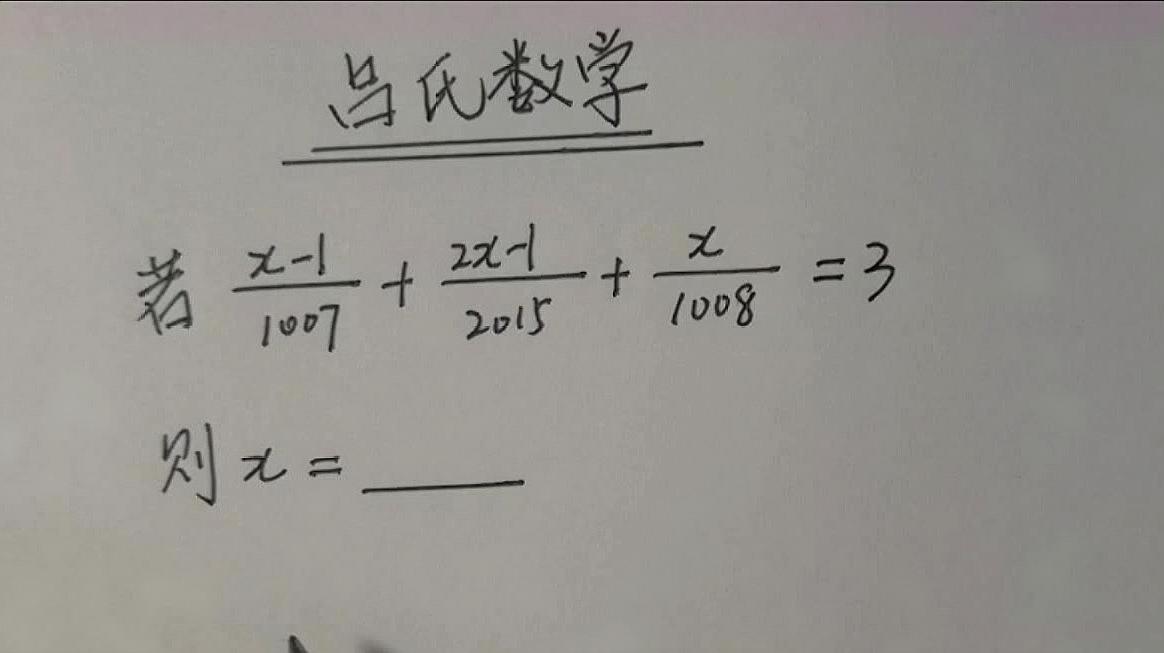 吕氏数学
若 \frac{x-1}{1007} + \frac{2x-1}{2015} + \frac{x}{1008} = 3
则 x = ____